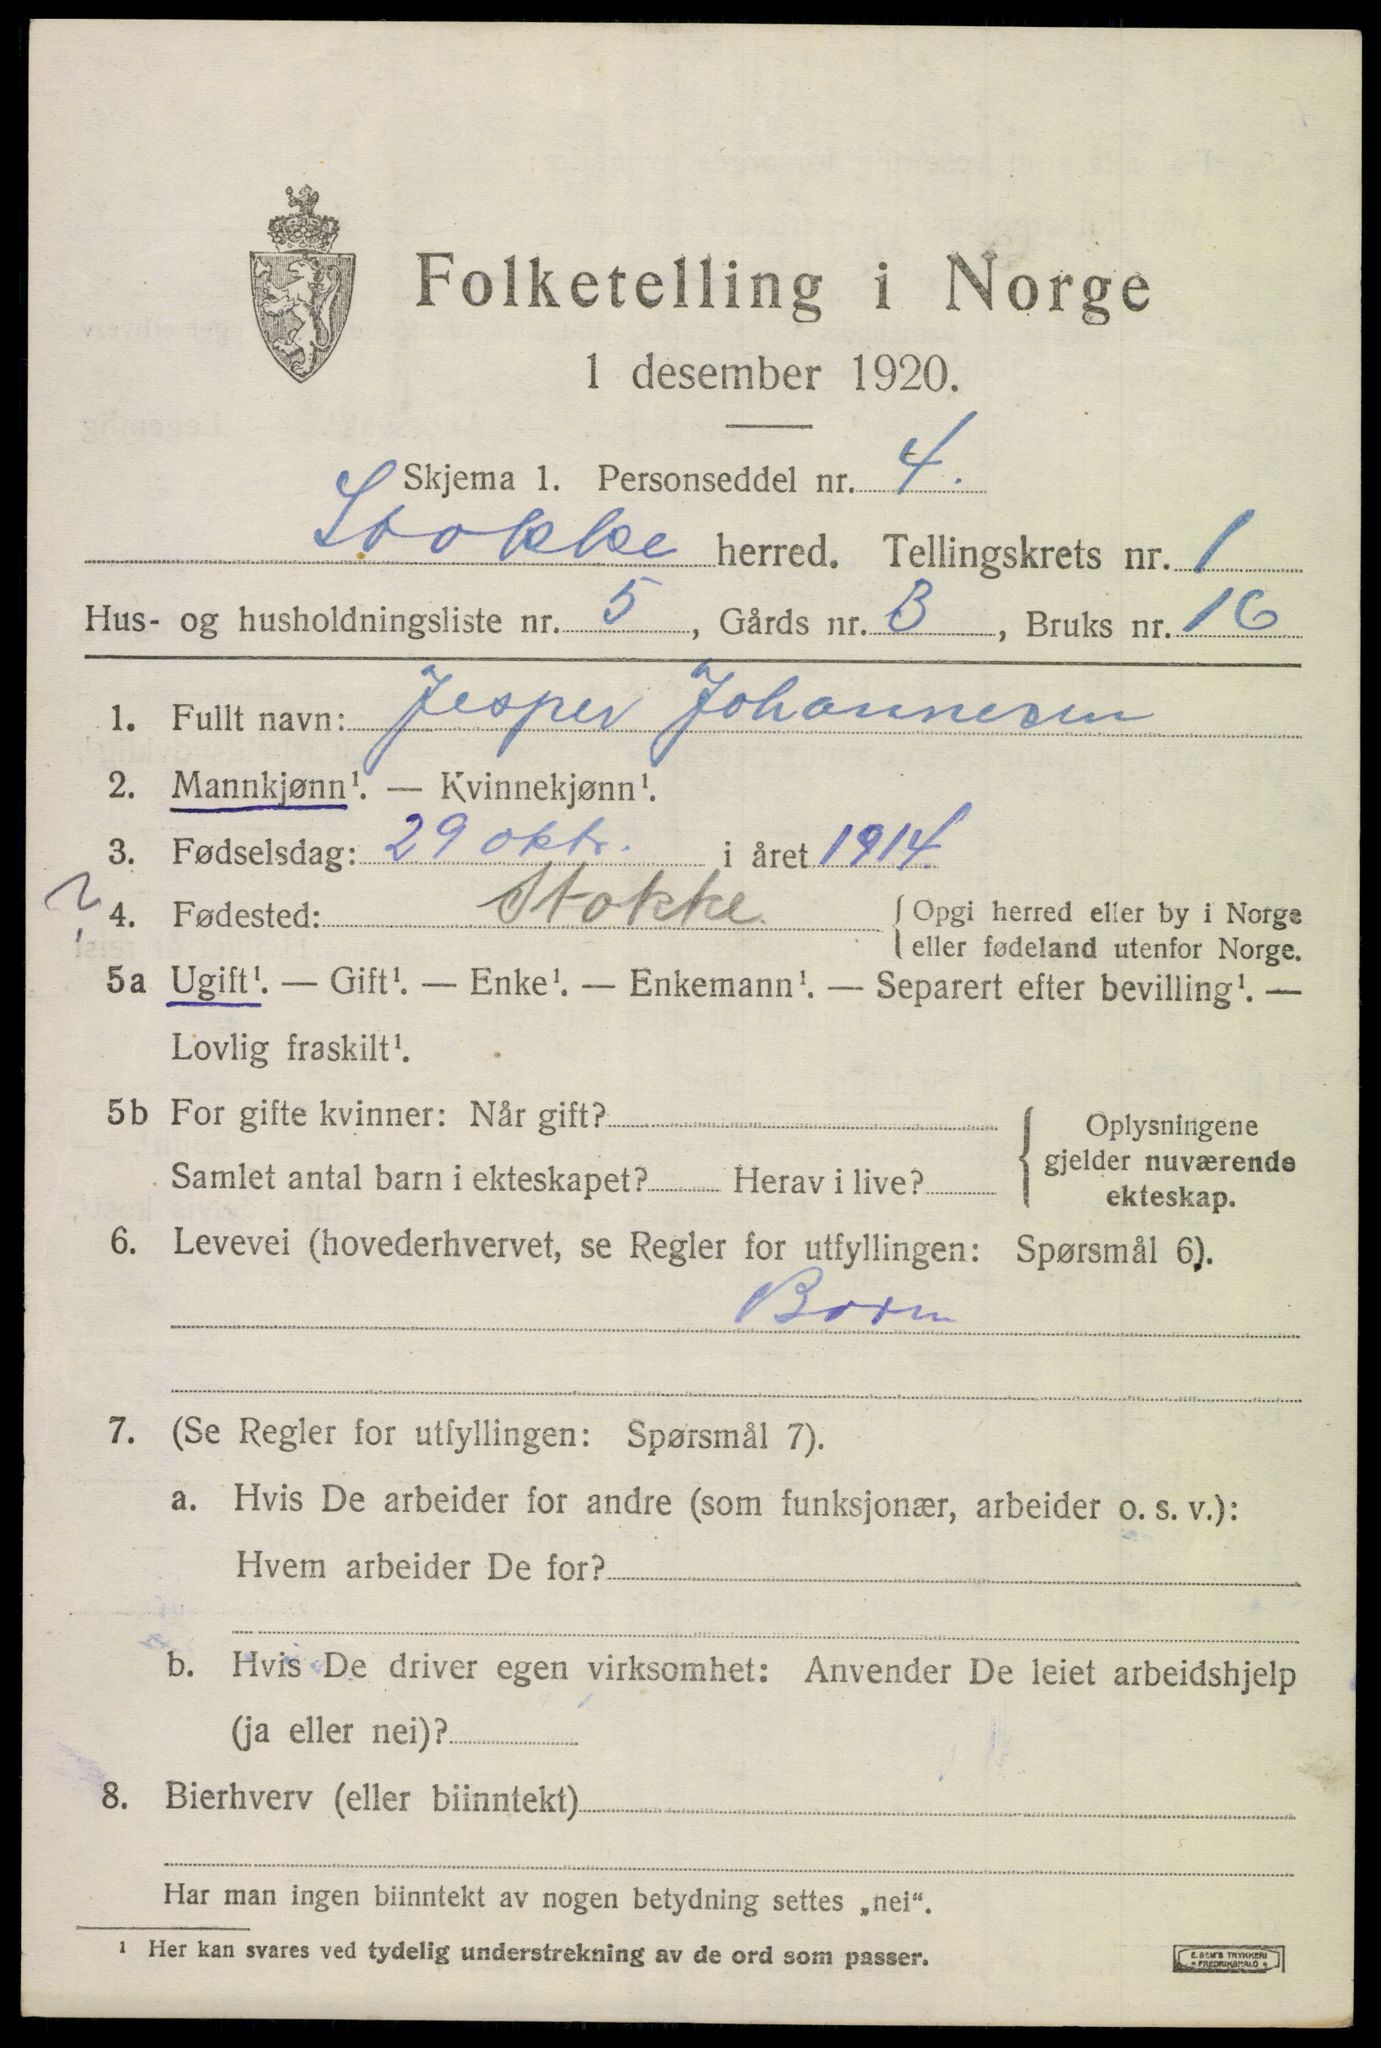 Folketelling i Norge
1 desember 1920.
Skjema 1. Personseddel nr. 4.
Stokke herred. Tellingskrets nr. 1
Hus- og husholdningsliste nr. 5, Gårds nr. 3, Bruks nr. 16
1. Fullt navn: Jesper Johannesen
2. Mannkjønn¹. — Kvinnekjønn¹.
3. Fødselsdag: 29 okt. i året 1914
? 4. Fødested: Stokke. { Opgi herred eller by i Norge
eller fødeland utenfor Norge.
5a Ugift¹. — Gift¹. — Enke¹. — Enkemann¹. — Separert efter bevilling¹. —
Lovlig fraskilt¹.
5b For gifte kvinner: Når gift? { Oplysningene
gjelder nuværende
Samlet antal barn i ekteskapet? Herav i live? ekteskap.
6. Levevei (hovederhvervet, se Regler for utfyllingen: Spørsmål 6).
Barn
7. (Se Regler for utfyllingen: Spørsmål 7).
a. Hvis De arbeider for andre (som funksjonær, arbeider o. s. v.):
Hvem arbeider De for?
b. Hvis De driver egen virksomhet: Anvender De leiet arbeidshjelp
(ja eller nei)?
8. Bierhverv (eller biinntekt)
Har man ingen biinntekt av nogen betydning settes „nei“.
¹ Her kan svares ved tydelig understrekning av de ord som passer.
E. SEM'S TRYKKERI
• FREDRIKSHALD •